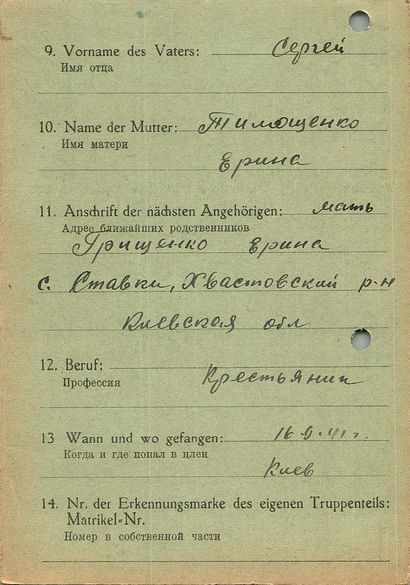 9. Vorname des Vaters: Сергей
Имя отца
10. Name der Mutter: Тимощенко
Имя матери
Ерина
11. Anschrift der nächsten Angehörigen: мать
Адрес ближайших родственников
Грищенко Ерина
с. Ставки, Хвастовский р-н
Киевская обл
12. Beruf: Крестьянин
Профессия
13 Wann und wo gefangen: 16.9.41 г.
Когда и где попал в плен
Киев
14. Nr. der Erkennungsmarke des eigenen Truppenteils:
Matrikel-Nr.
Номер в собственной части